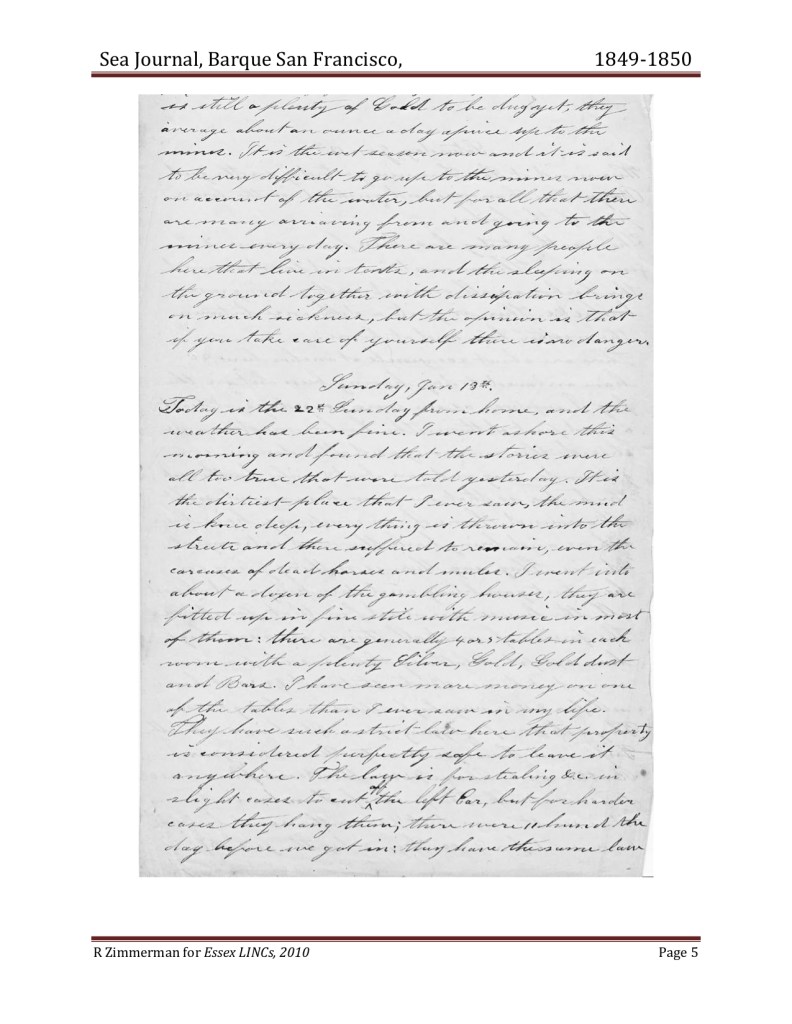 Sea Journal, Barque San Francisco, 1849-1850
is still a plenty of Gold to be dug yet, they
average about an ounce a day apiece up to the
mines. It is the wet season now and it is said
to be very difficult to go up to the mines now
on account of the water, but for all that there
are many arriaving from and going to the
mines every day. There are many people
here that live in tents, and the sleeping on
the ground together with dissipation brings
on much sickness, but the opinion is that
if you take care of yourself there is no danger.
Sunday, Jan 13th.
Today is the 22nd Sunday from home, and the
weather has been fine. I went ashore this
morning and found that the stories were
all too true that were told yesterday. It is
the dirtiest place that I ever saw, the mud
is knee deep, every thing is thrown into the
streets and there suffered to remain, even the
carcases of dead horses and mules. I went into
about a dozen of the gambling houses, they are
fitted up in fine stile with music in most
of them: there are generally 4 or 5 tables in each
room with a plenty Silver, Gold, Gold dust
and Bars. I have seen more money on one
of the tables than I ever saw in my life.
They have such a strict law here that property
is considered perfectly safe to leave it
anywhere. The law is for stealing &c. in
slight cases to cut off the left Ear, but for harder
cases they hang them; there were 11 hund the
day before we got in: they have the same law
R Zimmerman for Essex LINCs, 2010 Page 5